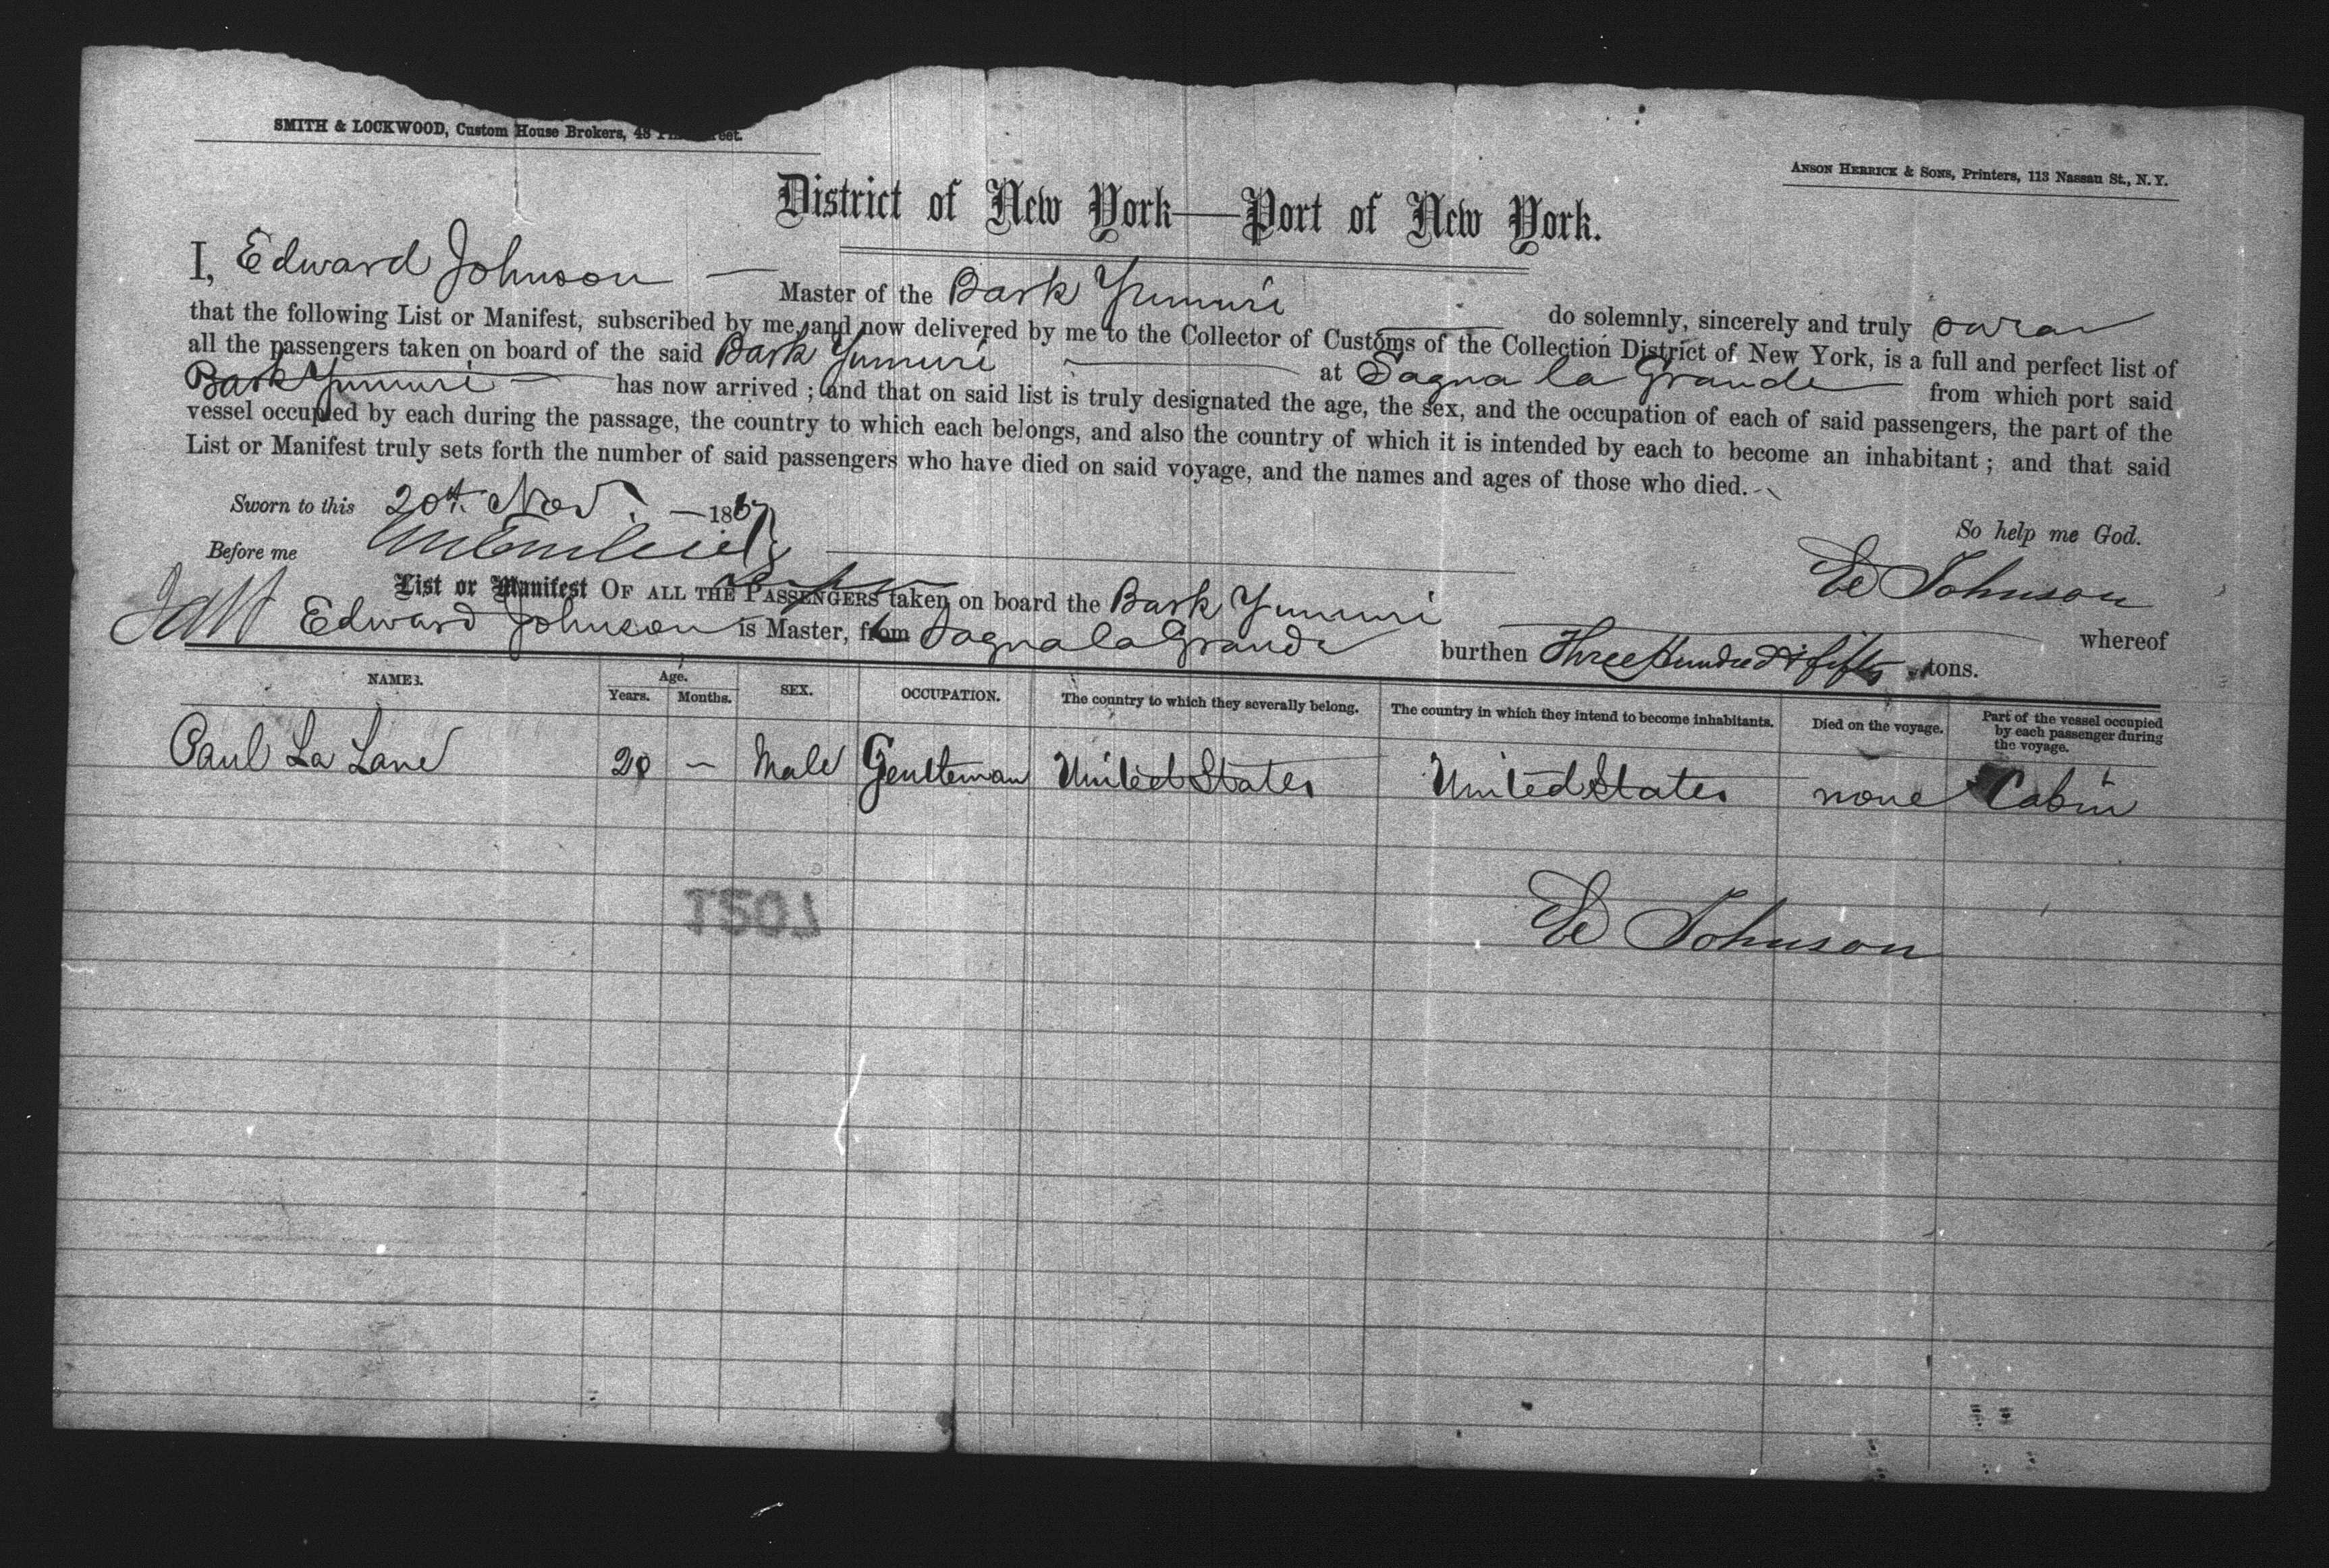 SMITH & LOCKWOOD, Custom House Brokers, 48
ANSON HERRICK & SONS, Printers, 113 Nassau St., N.Y.
District of New York—Port of New York.
I, Edward Johnson — Master of the Bark Yumuri do solemnly, sincerely and truly swear
that the following List or Manifest, subscribed by me, and now delivered by me to the Collector of Customs of the Collection District of New York, is a full and perfect list of
all the passengers taken on board of the said Bark Yumuri at Sagua la Grande from which port said
Bark Yumuri — has now arrived ; and that on said list is truly designated the age, the sex, and the occupation of each of said passengers, the part of the
vessel occupied by each during the passage, the country to which each belongs, and also the country of which it is intended by each to become an inhabitant ; and that said
List or Manifest truly sets forth the number of said passengers who have died on said voyage, and the names and ages of those who died.
Sworn to this 20th Nov. — 1867
So help me God.
Before me
Ed Johnson
List or Manifest OF ALL THE PASSENGERS taken on board the Bark Yumuri whereof
Edward Johnson is Master, from Sagua la Grande burthen Three Hundred & fifty tons.
NAMES. Age. Years. Months. SEX. OCCUPATION. The country to which they severally belong. The country in which they intend to become inhabitants. Died on the voyage. Part of the vessel occupied by each passenger during the voyage.
Paul La Lane 20 — Male Gentleman United States United States none Cabin
1251
Ed Johnson